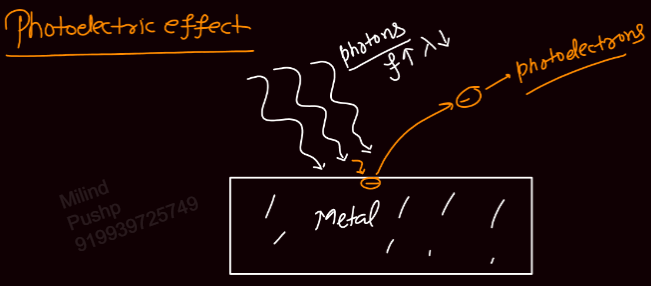 Photoelectric effect
photons
f↑ λ↓
photoelectrons
Metal
Milind
Pushp
919939725749